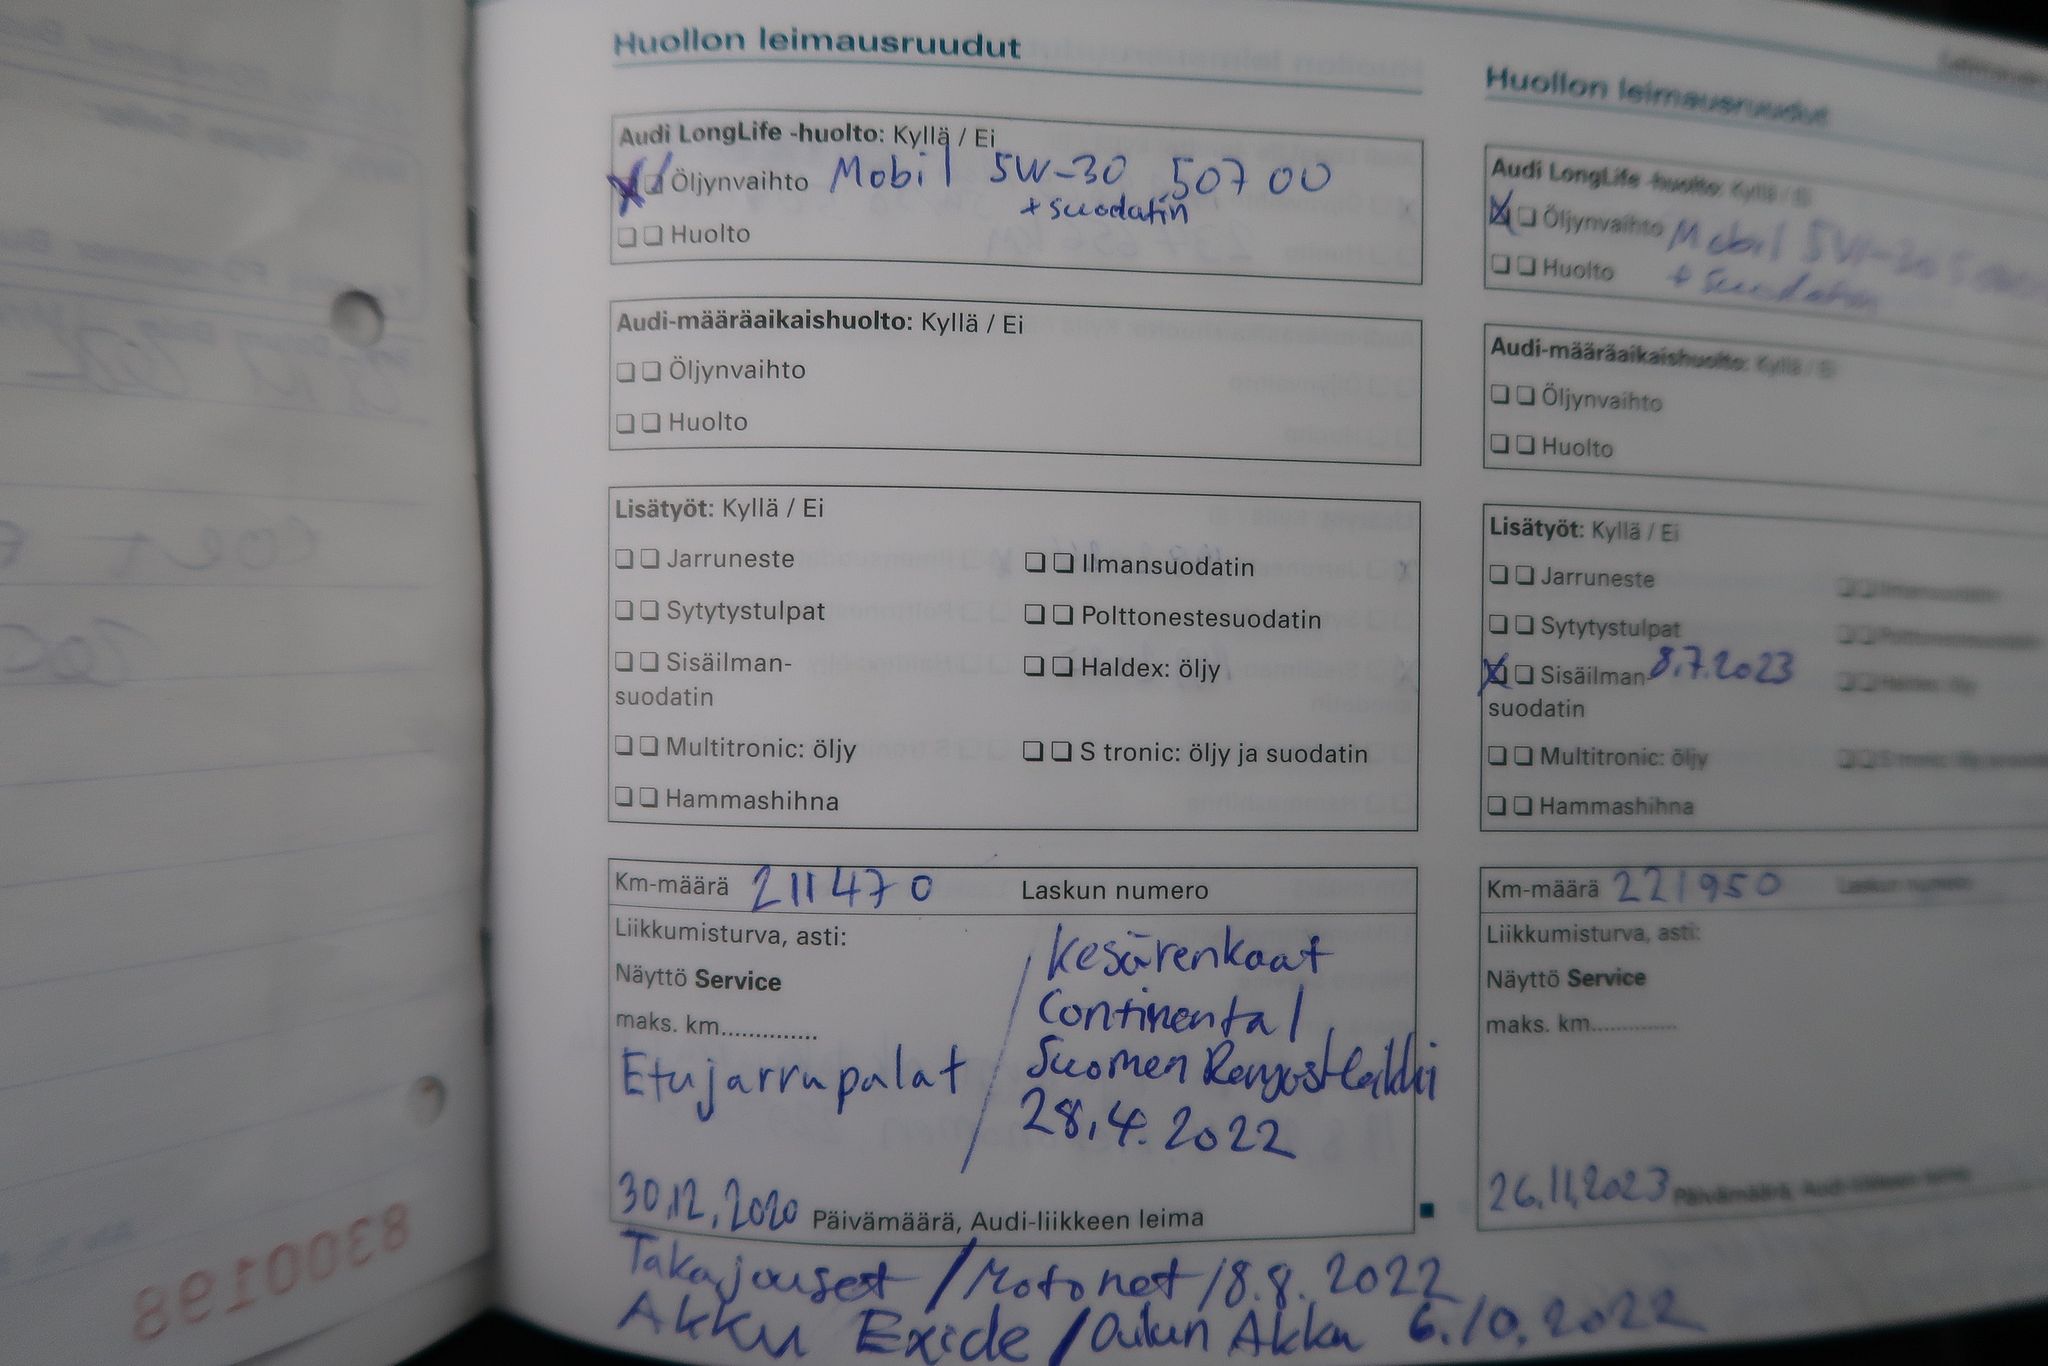 Huollon leimausruudut
Audi LongLife -huolto: Kyllä / Ei
Öljynvaihto Mobil 5W-30 507 00
+ suodatin
Huolto
Audi-määräaikaishuolto: Kyllä / Ei
Öljynvaihto
Huolto
Lisätyöt: Kyllä / Ei
Jarruneste Ilmansuodatin
Sytytystulpat Polttonestesuodatin
Sisäilman- Haldex: öljy
suodatin
Multitronic: öljy S tronic: öljy ja suodatin
Hammashihna
Km-määrä 211470 Laskun numero
Liikkumisturva, asti: / Kesärenkaat
Näyttö Service Continental
maks. km.............. Suomen
Etujarrupalat 28.4.2022
30.12.2020 Päivämäärä, Audi-liikkeen leima
Takajouset / Motonet / 8.8.2022
Akku Exide / Oulun Akku 6.10.2022
Huollon leimausruudut
Audi LongLife -huolto: Kyllä / Ei
Öljynvaihto Mobil 5W-30
Huolto + suodatin
Audi-määräaikaishuolto: Kyllä / Ei
Öljynvaihto
Huolto
Lisätyöt: Kyllä / Ei
Jarruneste Ilmansuodatin
Sytytystulpat Polttonestesuodatin
Sisäilman- 8.7.2023 Haldex: öljy
suodatin
Multitronic: öljy S tronic: öljy ja suodatin
Hammashihna
Km-määrä 221950 Laskun numero
Liikkumisturva, asti:
Näyttö Service
maks. km..............
26.11.2023 Päivämäärä, Audi-liikkeen leima
8300198